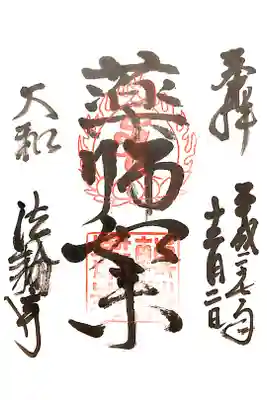 奉拝
平成二七年
十二月二日
薬師如来
大和
法輪寺